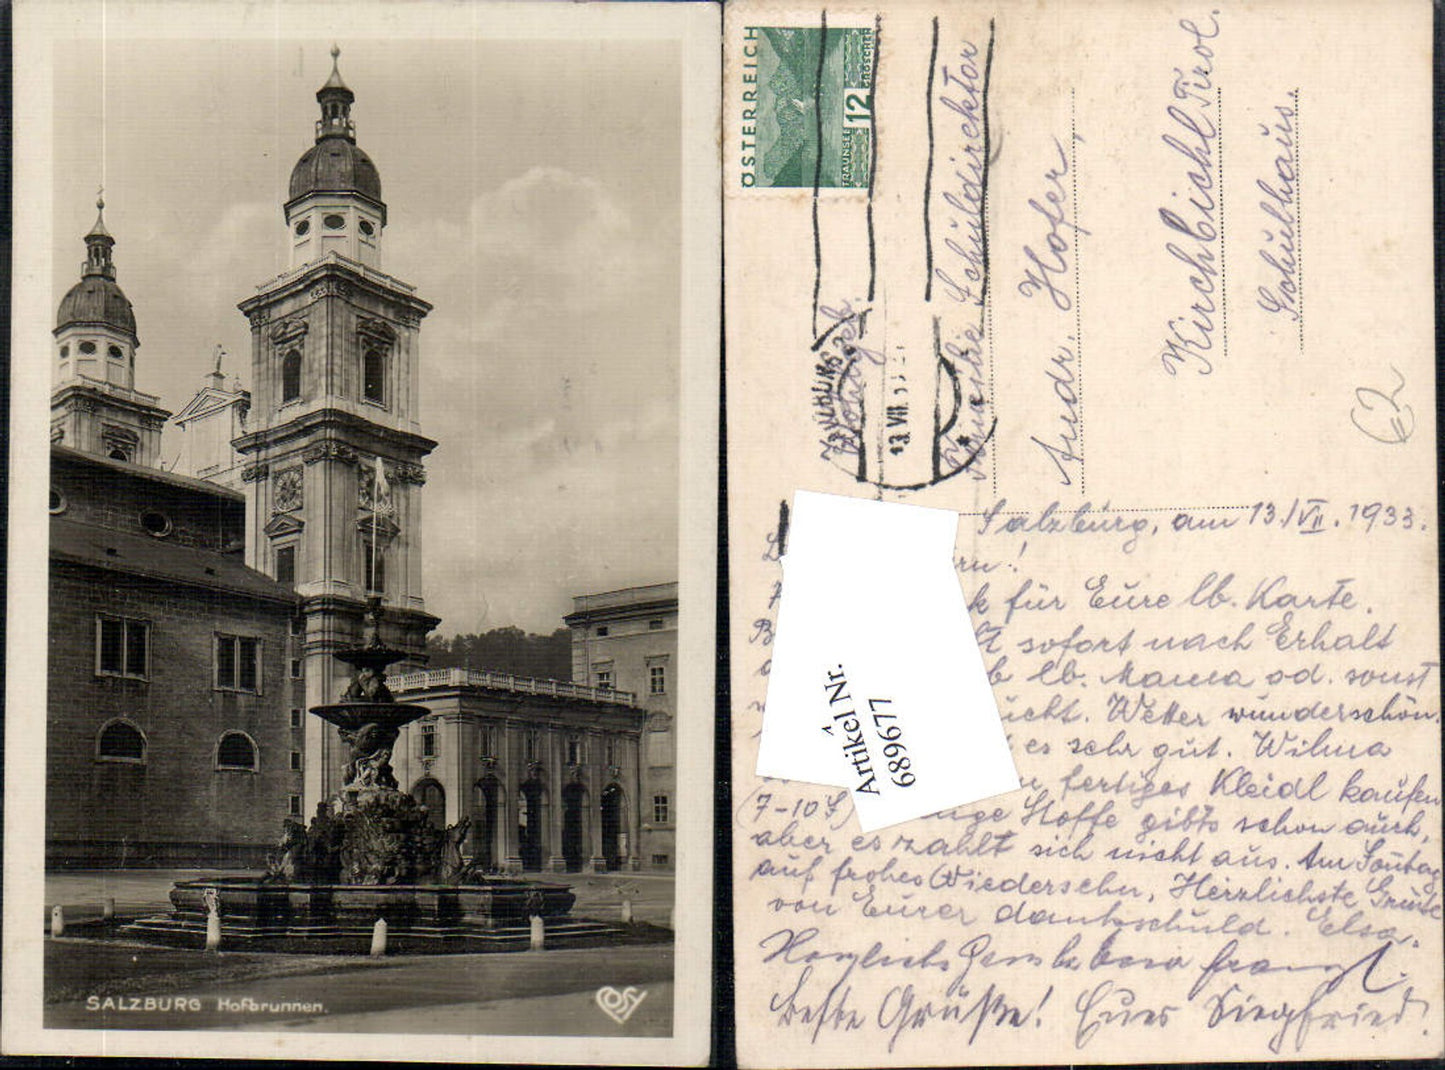 SALZBURG Hofbrunnen.
COSY
ÖSTERREICH
12
GROSCHEN
TRAUNSEE
SALZBURG 2
13.VII.33
Familie Schuldirektor
Andr. Hofer,
Kirchbichl Tirol.
Schulhaus.
62
Salzburg, am 13./VII. 1933.
für Eure lb. Karte.
sofort nach Erhalt
lb. Mama od. sonst
Wetter wunderschön.
es sehr gut. Wilma
fertiges Kleidl kaufen
(7-10 S) Stoffe gibts schon auch,
aber es zahlt sich nicht aus. Am Sonntag
auf frohes Wiedersehn. Herzlichste Grüße
von Eurer dankschuld. Elsa.
Beste Grüße! Euer Siegfried.
Artikel Nr.
689677